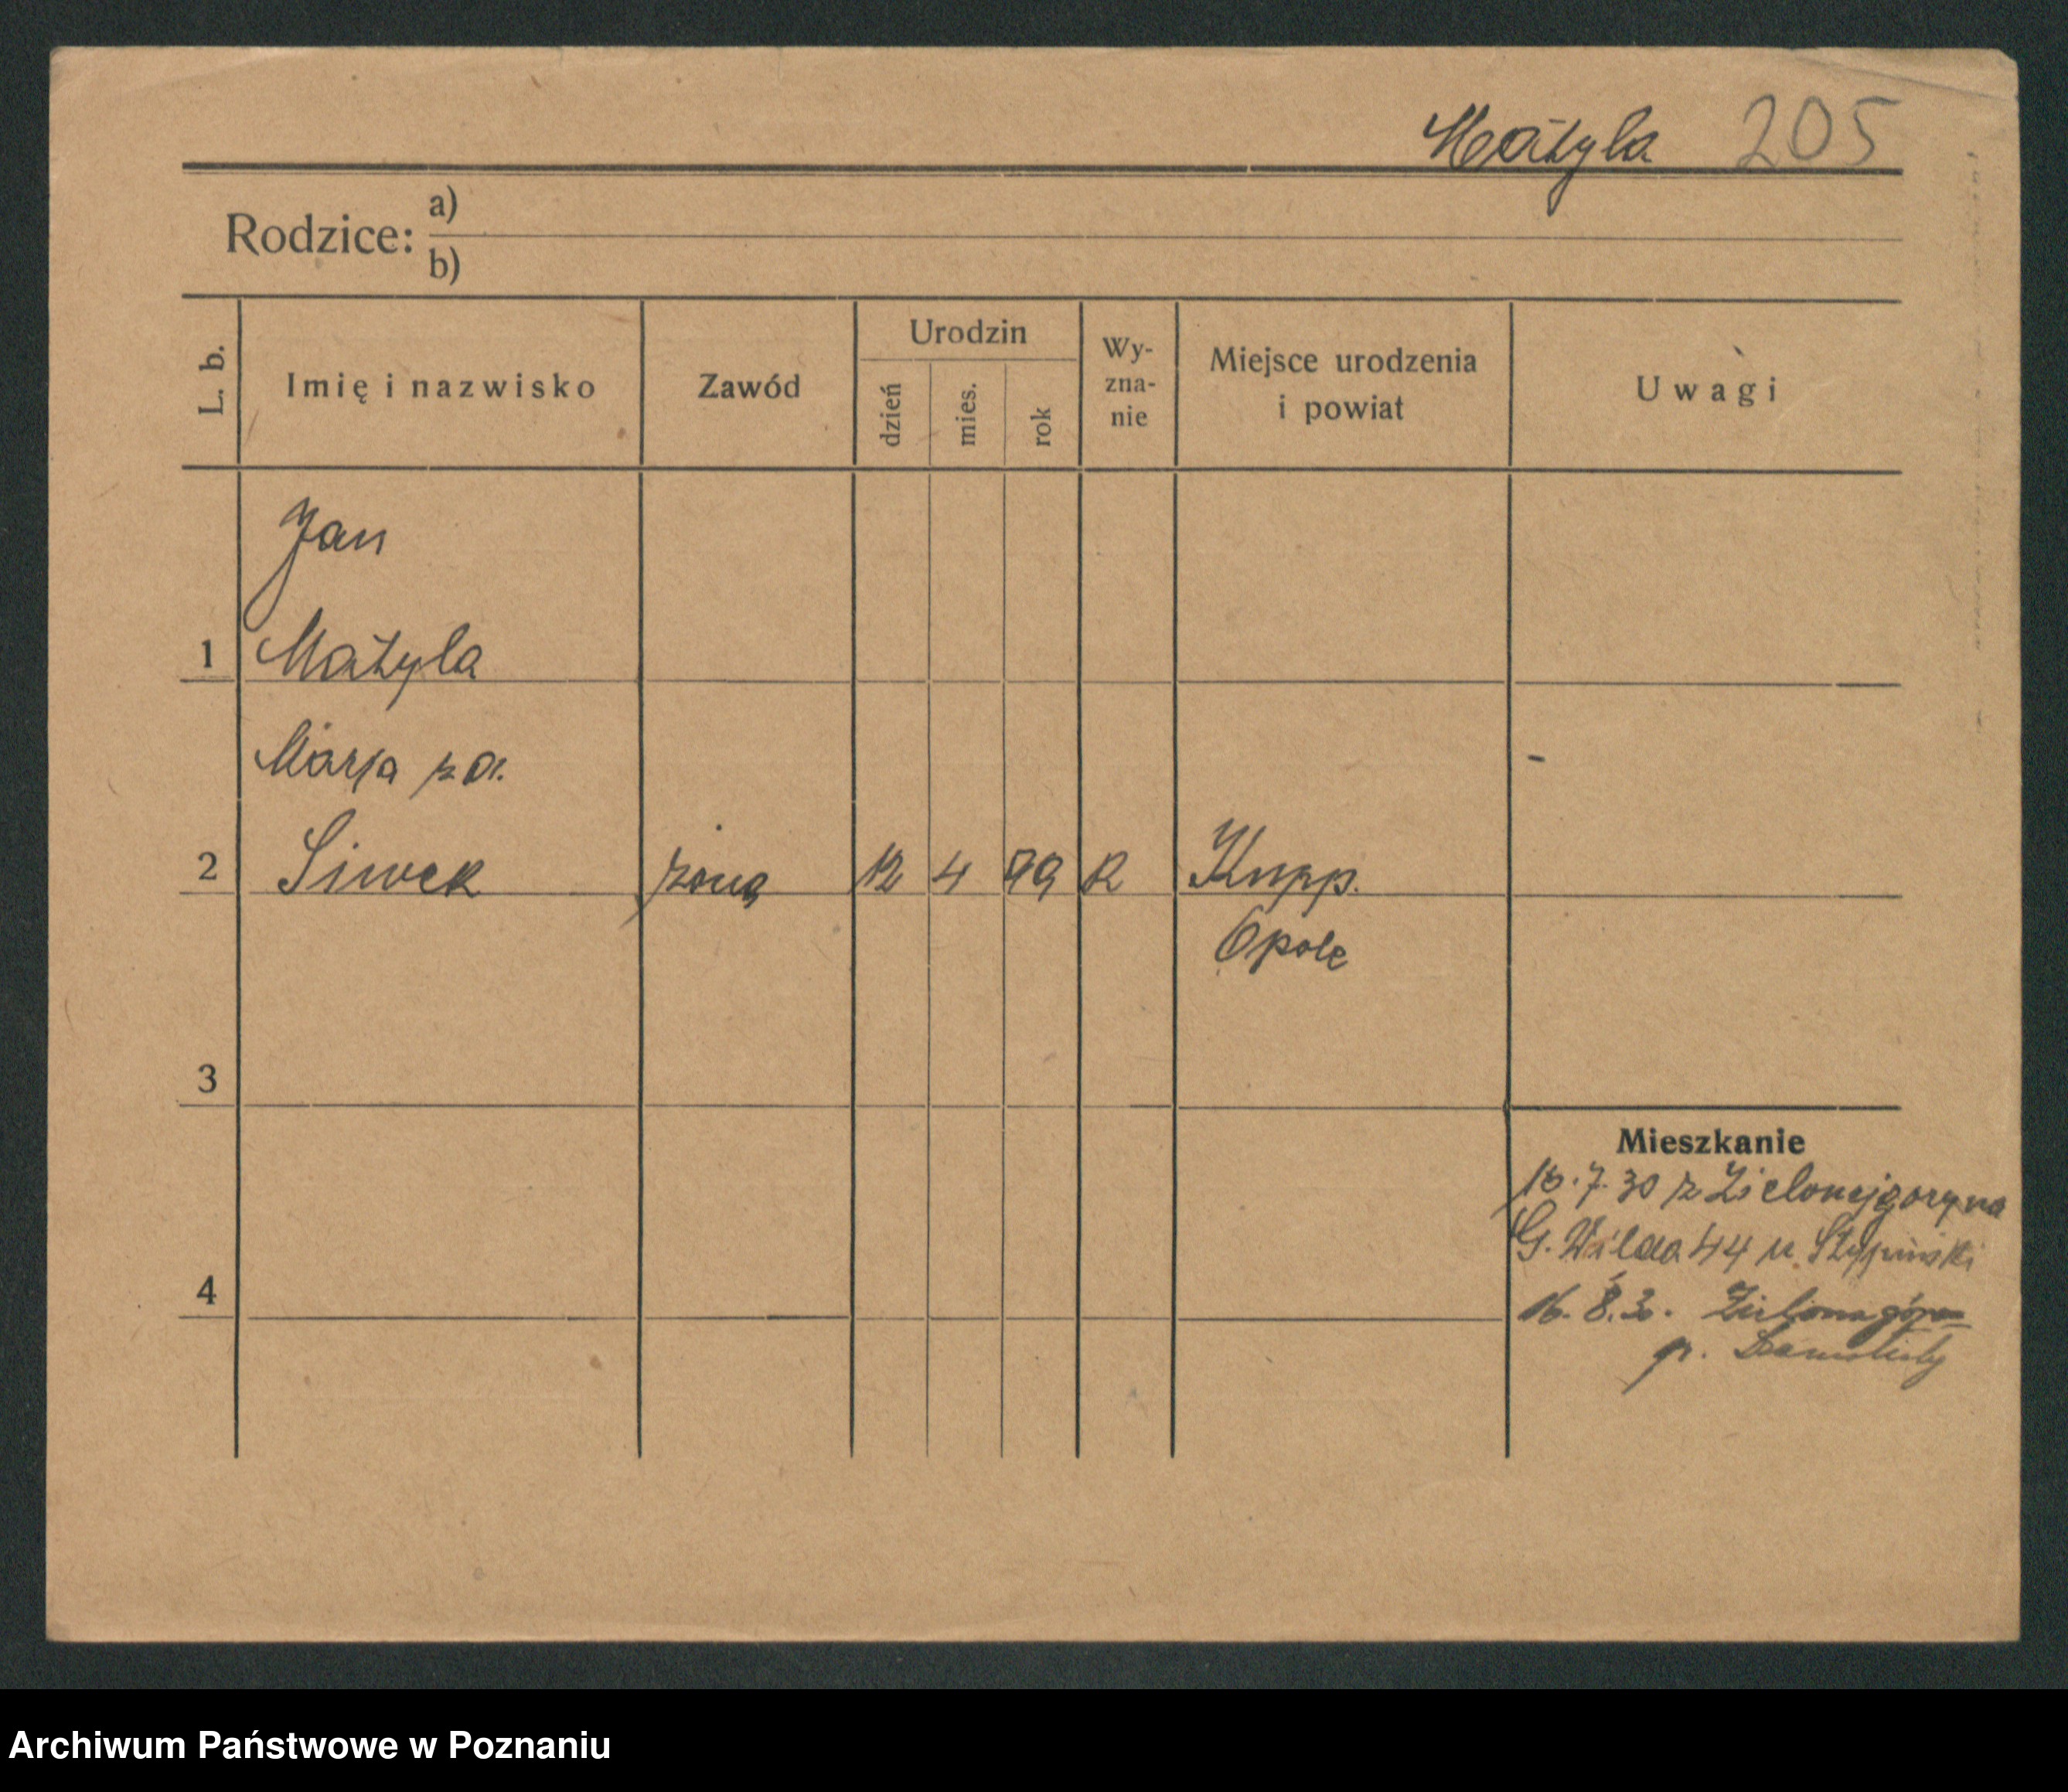 Matyla 205
Rodzice: a)
b)
L. b.
Imię i nazwisko
Zawód
Urodzin
dzień
mies.
rok
Wy-
zna-
nie
Miejsce urodzenia
i powiat
Uwagi
Jan
1 Matyla
Marja
2 Siwek żona 12 4 99 R Kupp.
Opole
3
Mieszkanie
7.30 z Zielonejgory na
G. Wilda 44 u
4
16. 8. 30. Zielonagóra
p. Szamotuły
Archiwum Państwowe w Poznaniu